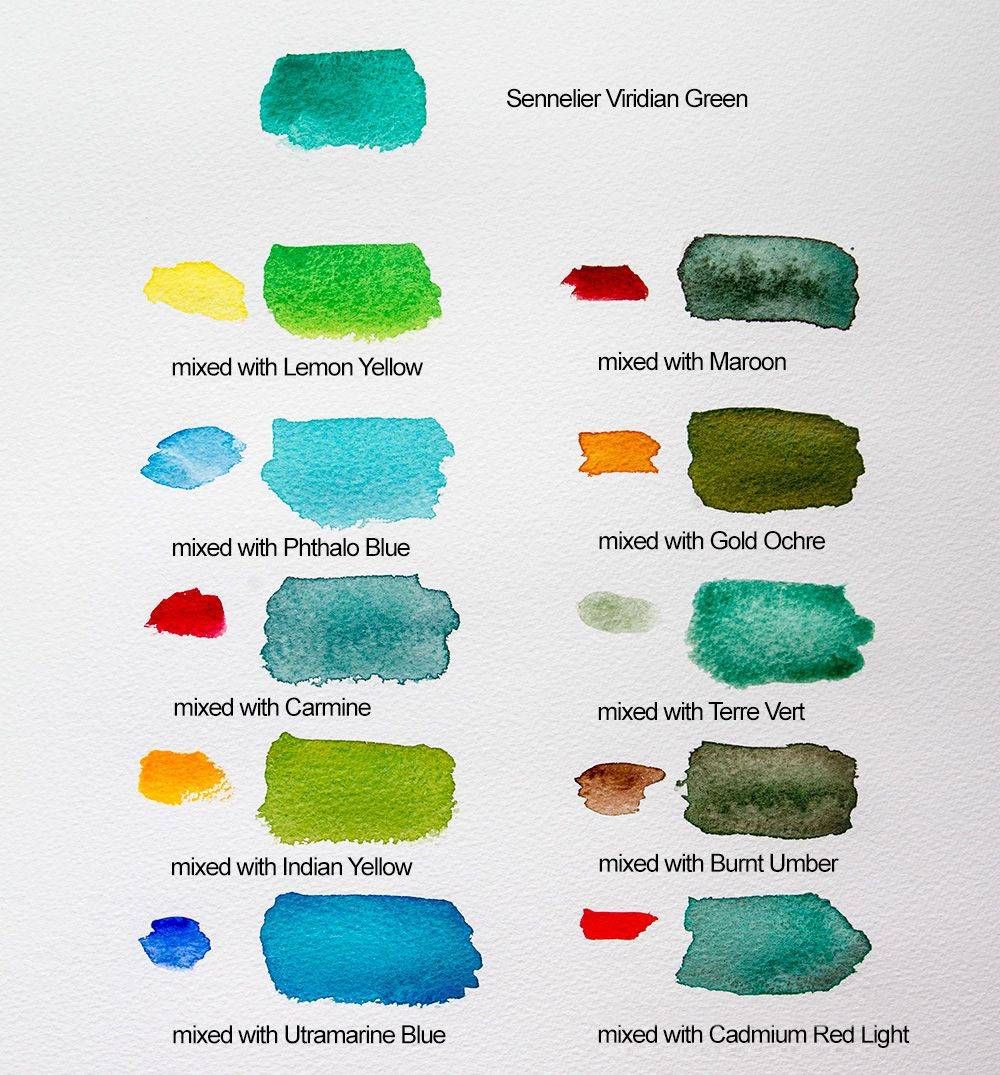 Sennelier Viridian Green
mixed with Lemon Yellow
mixed with Maroon
mixed with Phthalo Blue
mixed with Gold Ochre
mixed with Carmine
mixed with Terre Vert
mixed with Indian Yellow
mixed with Burnt Umber
mixed with Utramarine Blue
mixed with Cadmium Red Light